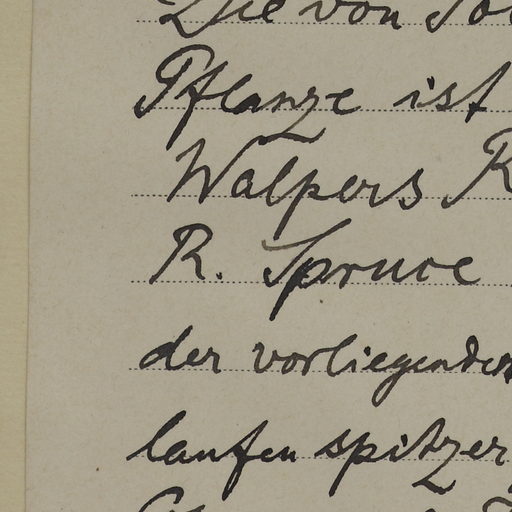 Die von
Pflanze ist
Walpers
R. Spruce
der vorliegenden
laufen spitzer